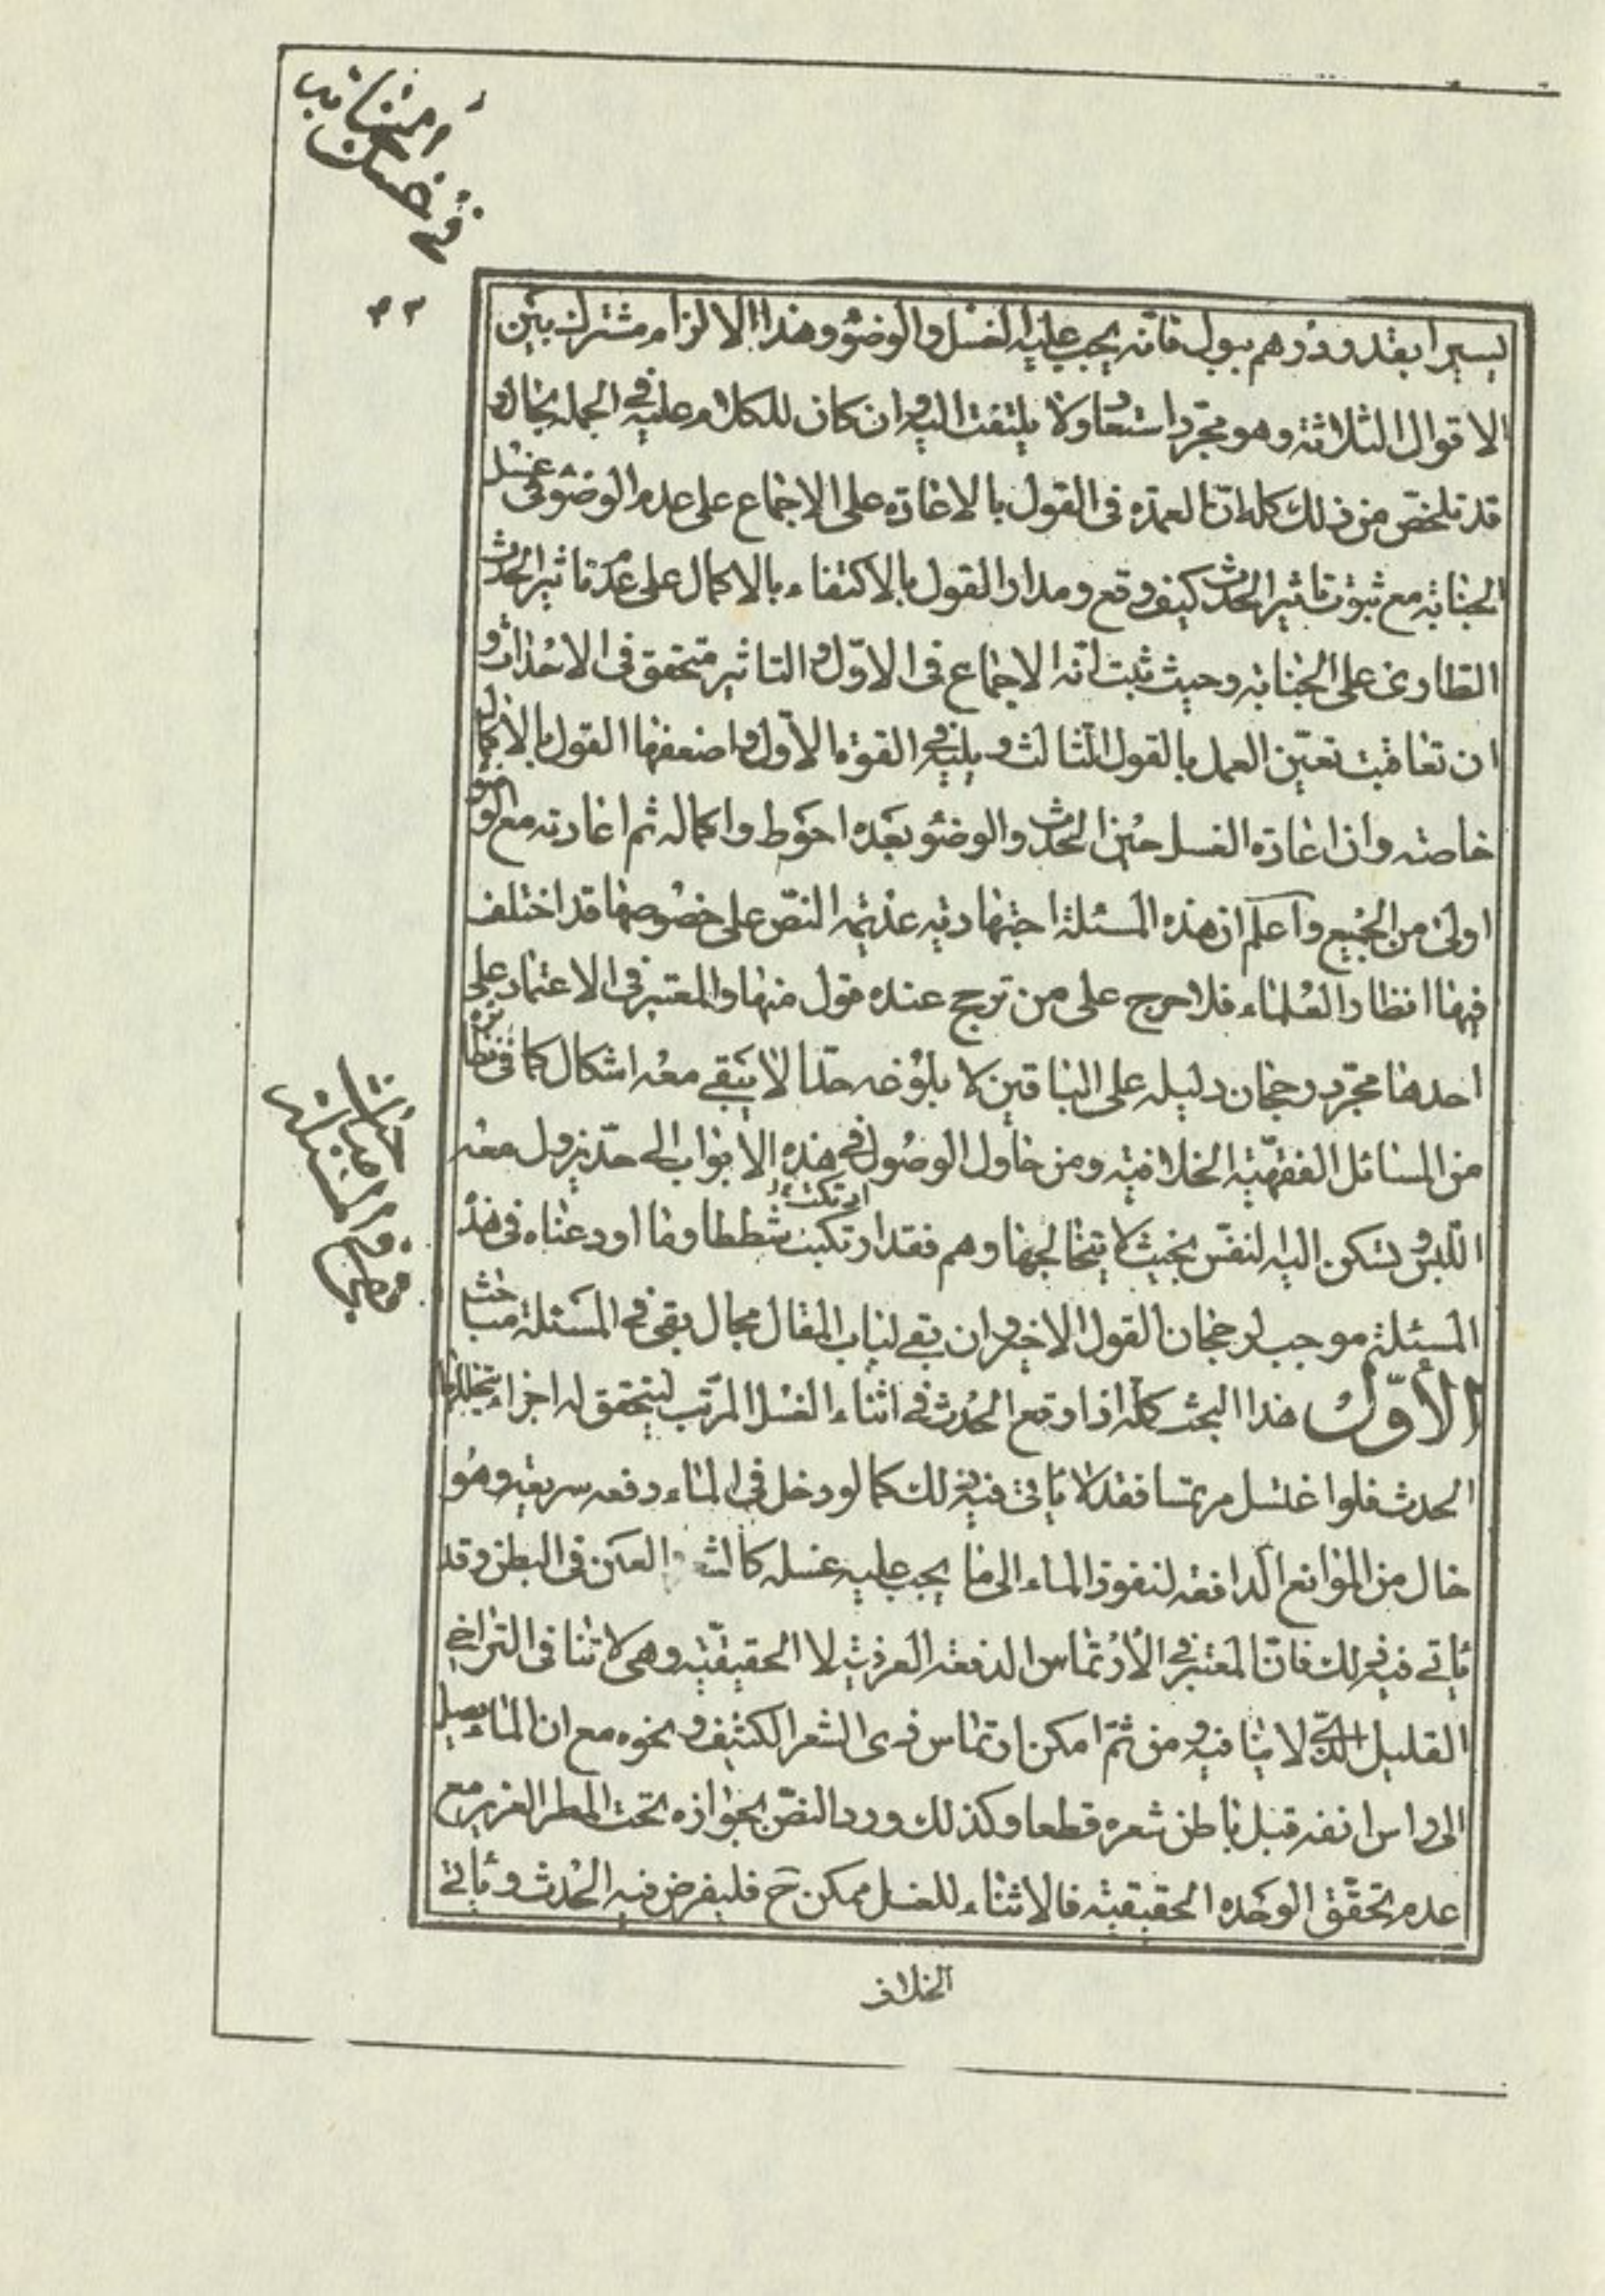 في غسل الجنابه
٤٣
يسيرا بقدر درهم ببول فانّه يجب عليه الغسل والوضوء وهذا الالزام مشترك بين
الاقوال الثلاثة وهو مجرّد استبعاد ولا يلتفت اليه وان كان للكلام عليه في الجمله مجال و
قد تلخّص من ذلك كله انّ العمدة في القول بالاعادة على الاجماع على عدم الوضوء في غسل
الجنابة مع ثبوت تاثير الحدث كيف وقع ومدار القول بالاكتفاء بالاكمال على عدم تاثير الحدث
الطارى على الجنابة وحيث ثبت انّه لا اجماع في الاوّل والتاثير متحقق في الاحداث و
ان تعاقبت تعيّن العمل بالقول الثالث ويليه في القوة الاوّل واضعفها القول بالاكمال
خاصة وان اعادة الغسل حين الحدث والوضوء بعده احوط واكماله ثم اعادته مع الوضوء
اولى من الجميع واعلم ان هذه المسئلة اجتهادية عديمة النصّ على خصوصها قد اختلف
فيها انظار العلماء فلا حرج على من ترجح عنده قول منها والمعتبر في الاعتماد على
احدها مجرّد رجحان دليله على الباقين لا بلوغه حدّا لا يبقى معه اشكال كما في نظائره
من المسائل الفقهيّة الخلافية ومن حاول الوصول في هذه الابواب الى حدّ يزول معه
اللبس وتسكن اليه النفس بحيث لا يتخالجها وهم فقد ارتكب شططا وما اودعناه في هذه
المسئلة موجب لرجحان القول الاخير وان بقي لباب المقال مجال بقى في المسئلة مباحث
الأوّل هذا البحث كلّه اذا وقع الحدث في اثناء الغسل المرتّب ليتحقق له اجزاء يتخللها
الحدث فلو اغتسل مرتمسا فقد لا ياتى فيه ذلك كما لو دخل في الماء دفعه سريعه وهو
خال من الموانع الدافعه لنفوذ الماء الى ما يجب عليه غسله كالشعر والعكن في البطن وقد
ياتي فيه ذلك فانّ المعتبر في الارتماس الدفعة العرفية لا الحقيقيّة وهي لا تنافى التراخي
القليل الّذي لا ينافيه ومن ثمّ امكن ارتماس ذى الشعر الكثيف ونحوه مع ان الماء يصل
الى راس انفه قبل باطن شعره قطعا وكذلك ورد النصّ بجوازه تحت المطر الغزير مع
عدم تحقّق الوحده الحقيقية فالاثناء للغسل ممكن ح فليفرض فيه الحدث وياتي
الخلاف